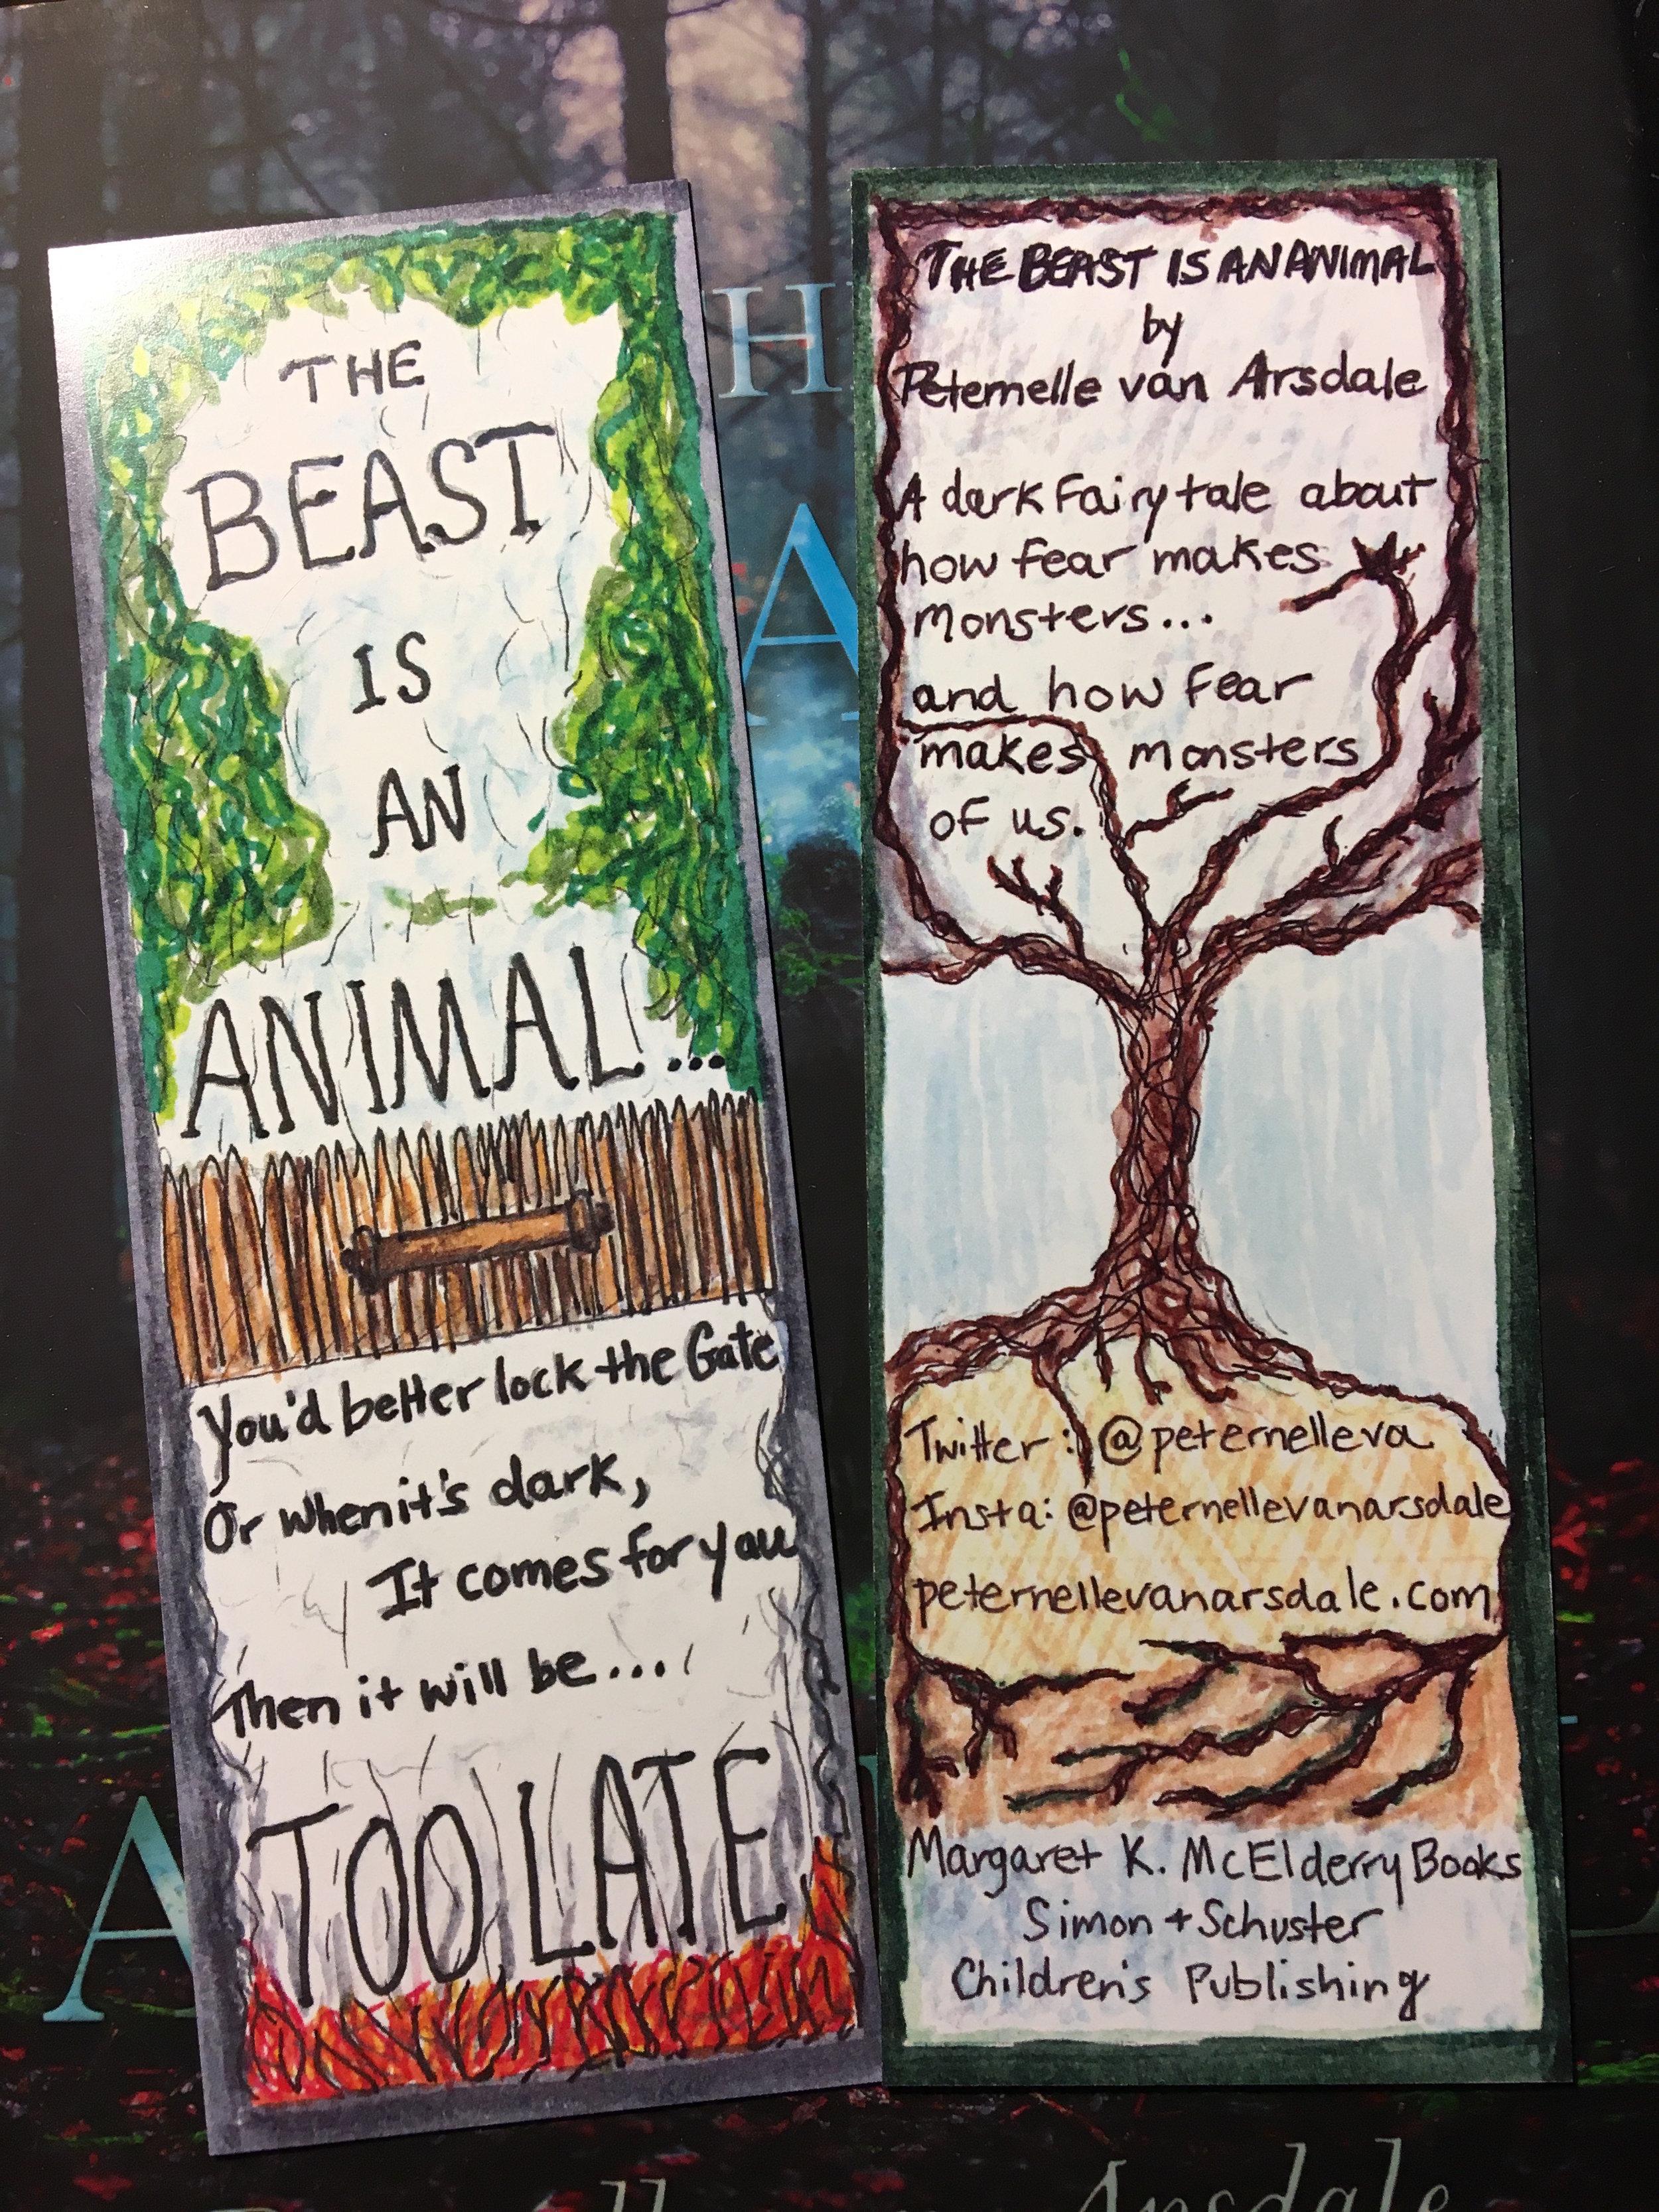 THE
BEAST
IS
AN
ANIMAL...
You'd better lock the Gate
Or when it's dark,
It comes for you
Then it will be...
TOO LATE
THE BEAST IS AN ANIMAL
by
Peternelle van Arsdale
A dark fairy tale about
how fear makes
monsters...
and how fear
makes monsters
of us.
Twitter: @peternelleva
Insta: @peternellevanarsdale
peternellevanarsdale.com
Margaret K. McElderry Books
Simon + Schuster
Children's Publishing